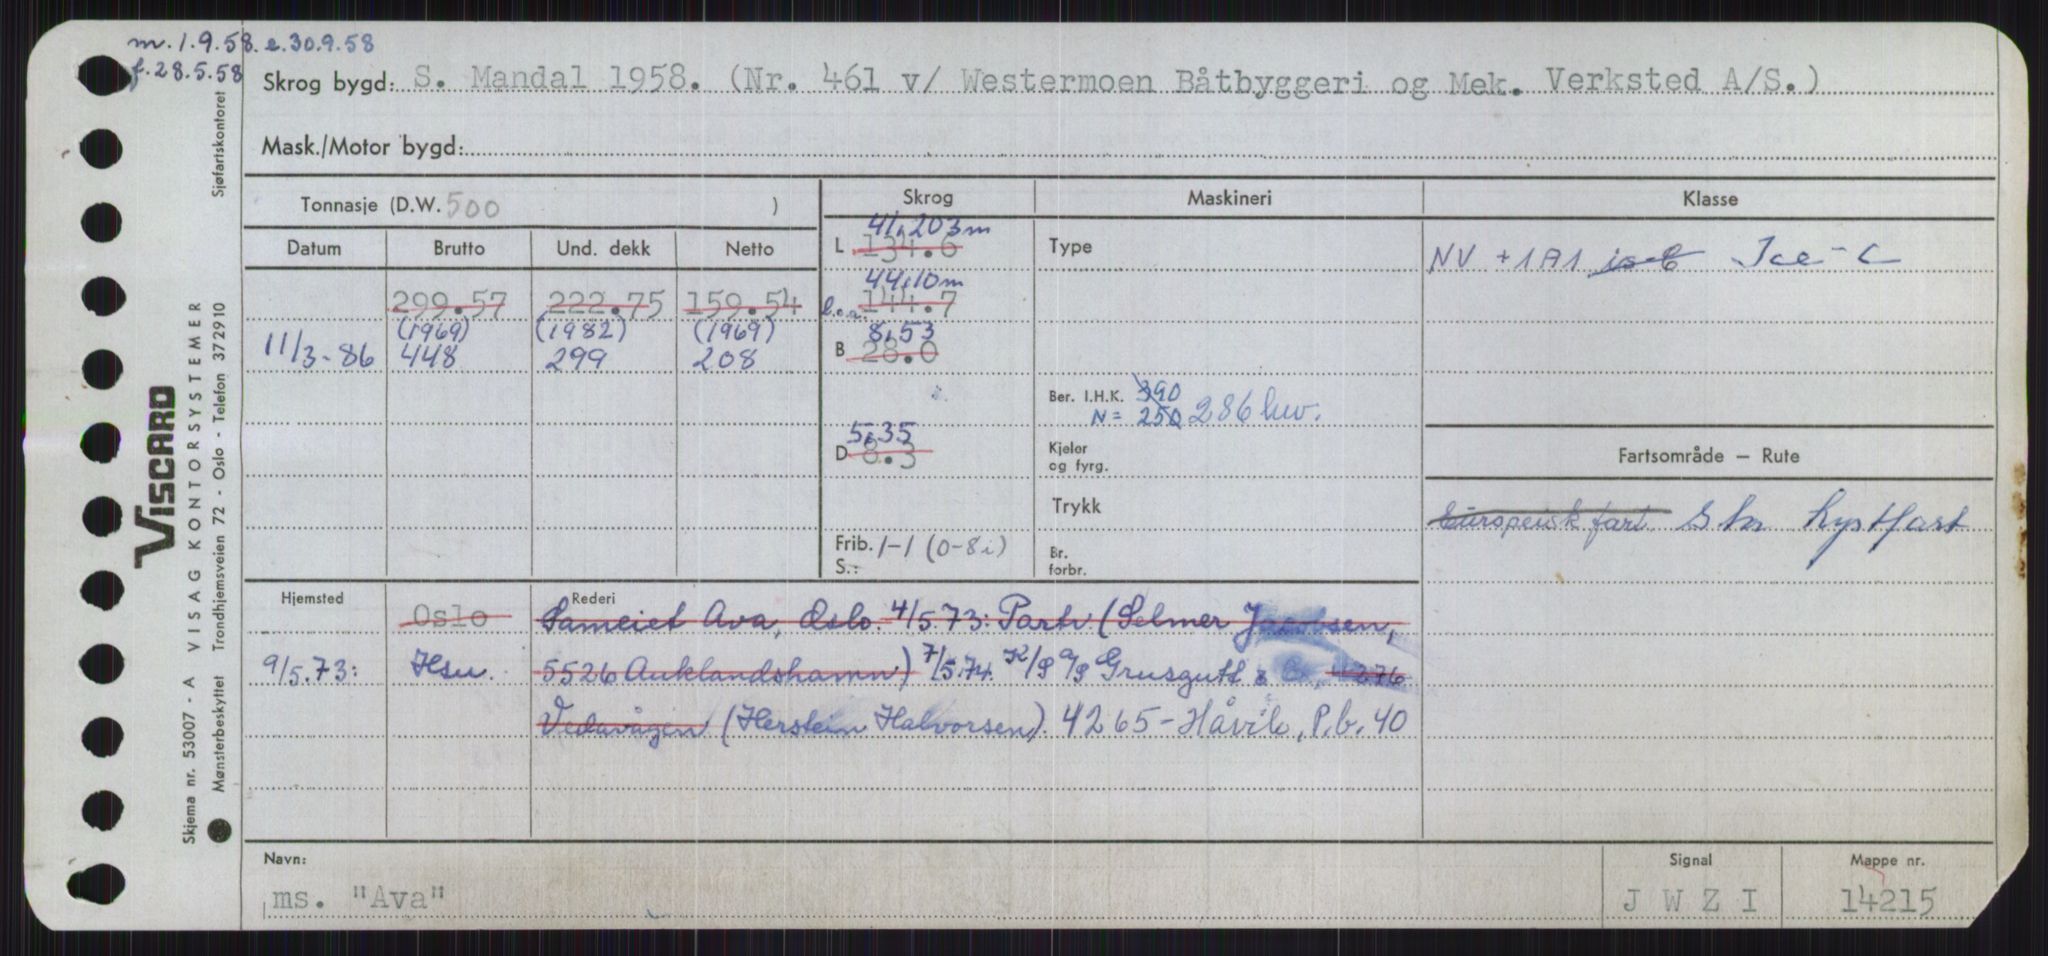 m. 1.9.58. e. 30.9.58
f. 28.5.58
Skrog bygd: S. Mandal 1958. (Nr. 461 v/ Westermoen Båtbyggeri og Mek. Verksted A/S.)
Mask./Motor bygd:
Tonnasje (D.W. 500 )
Skrog
Maskineri
Klasse
Datum Brutto Und. dekk Netto
41,203 m
L 134.6
Type
NV +1A1 is C Ice-C
299.57 222.75 159.54
44,10 m
l.o.a. 144.7
(1969) (1982) (1969)
11/3-86 448 299 208
8,53
B 28.0
Ber. I.H.K. 390
N = 250 286 hw.
5,35
D 8.3
Kjeler
og fyrg.
Fartsområde – Rute
Trykk
Europeisk fart Stor Kystfart
Frib. 1-1 (0-8i)
S.:
Br.
forbr.
Hjemsted
Rederi
Oslo
Sameiet Ava, Oslo. 4/5.73: Partr (Selmer Jacobsen,
9/5.73: Hsu.
5526 Auklandshamn) 7/5.74. K/S A/S Grusgutt & Co, 4276
Vedavågen (Herstein Halvorsen). 4265 - Håvik, P.b. 40
Navn:
ms. "Ava"
Signal
J W Z I
Mappe nr.
14215
Sjøfartskontoret
VISCARD
Skjema nr. 53007 - A VISAG KONTORSYSTEMER
Mønsterbeskyttet Trondhjemsveien 72 - Oslo - Telefon 372910